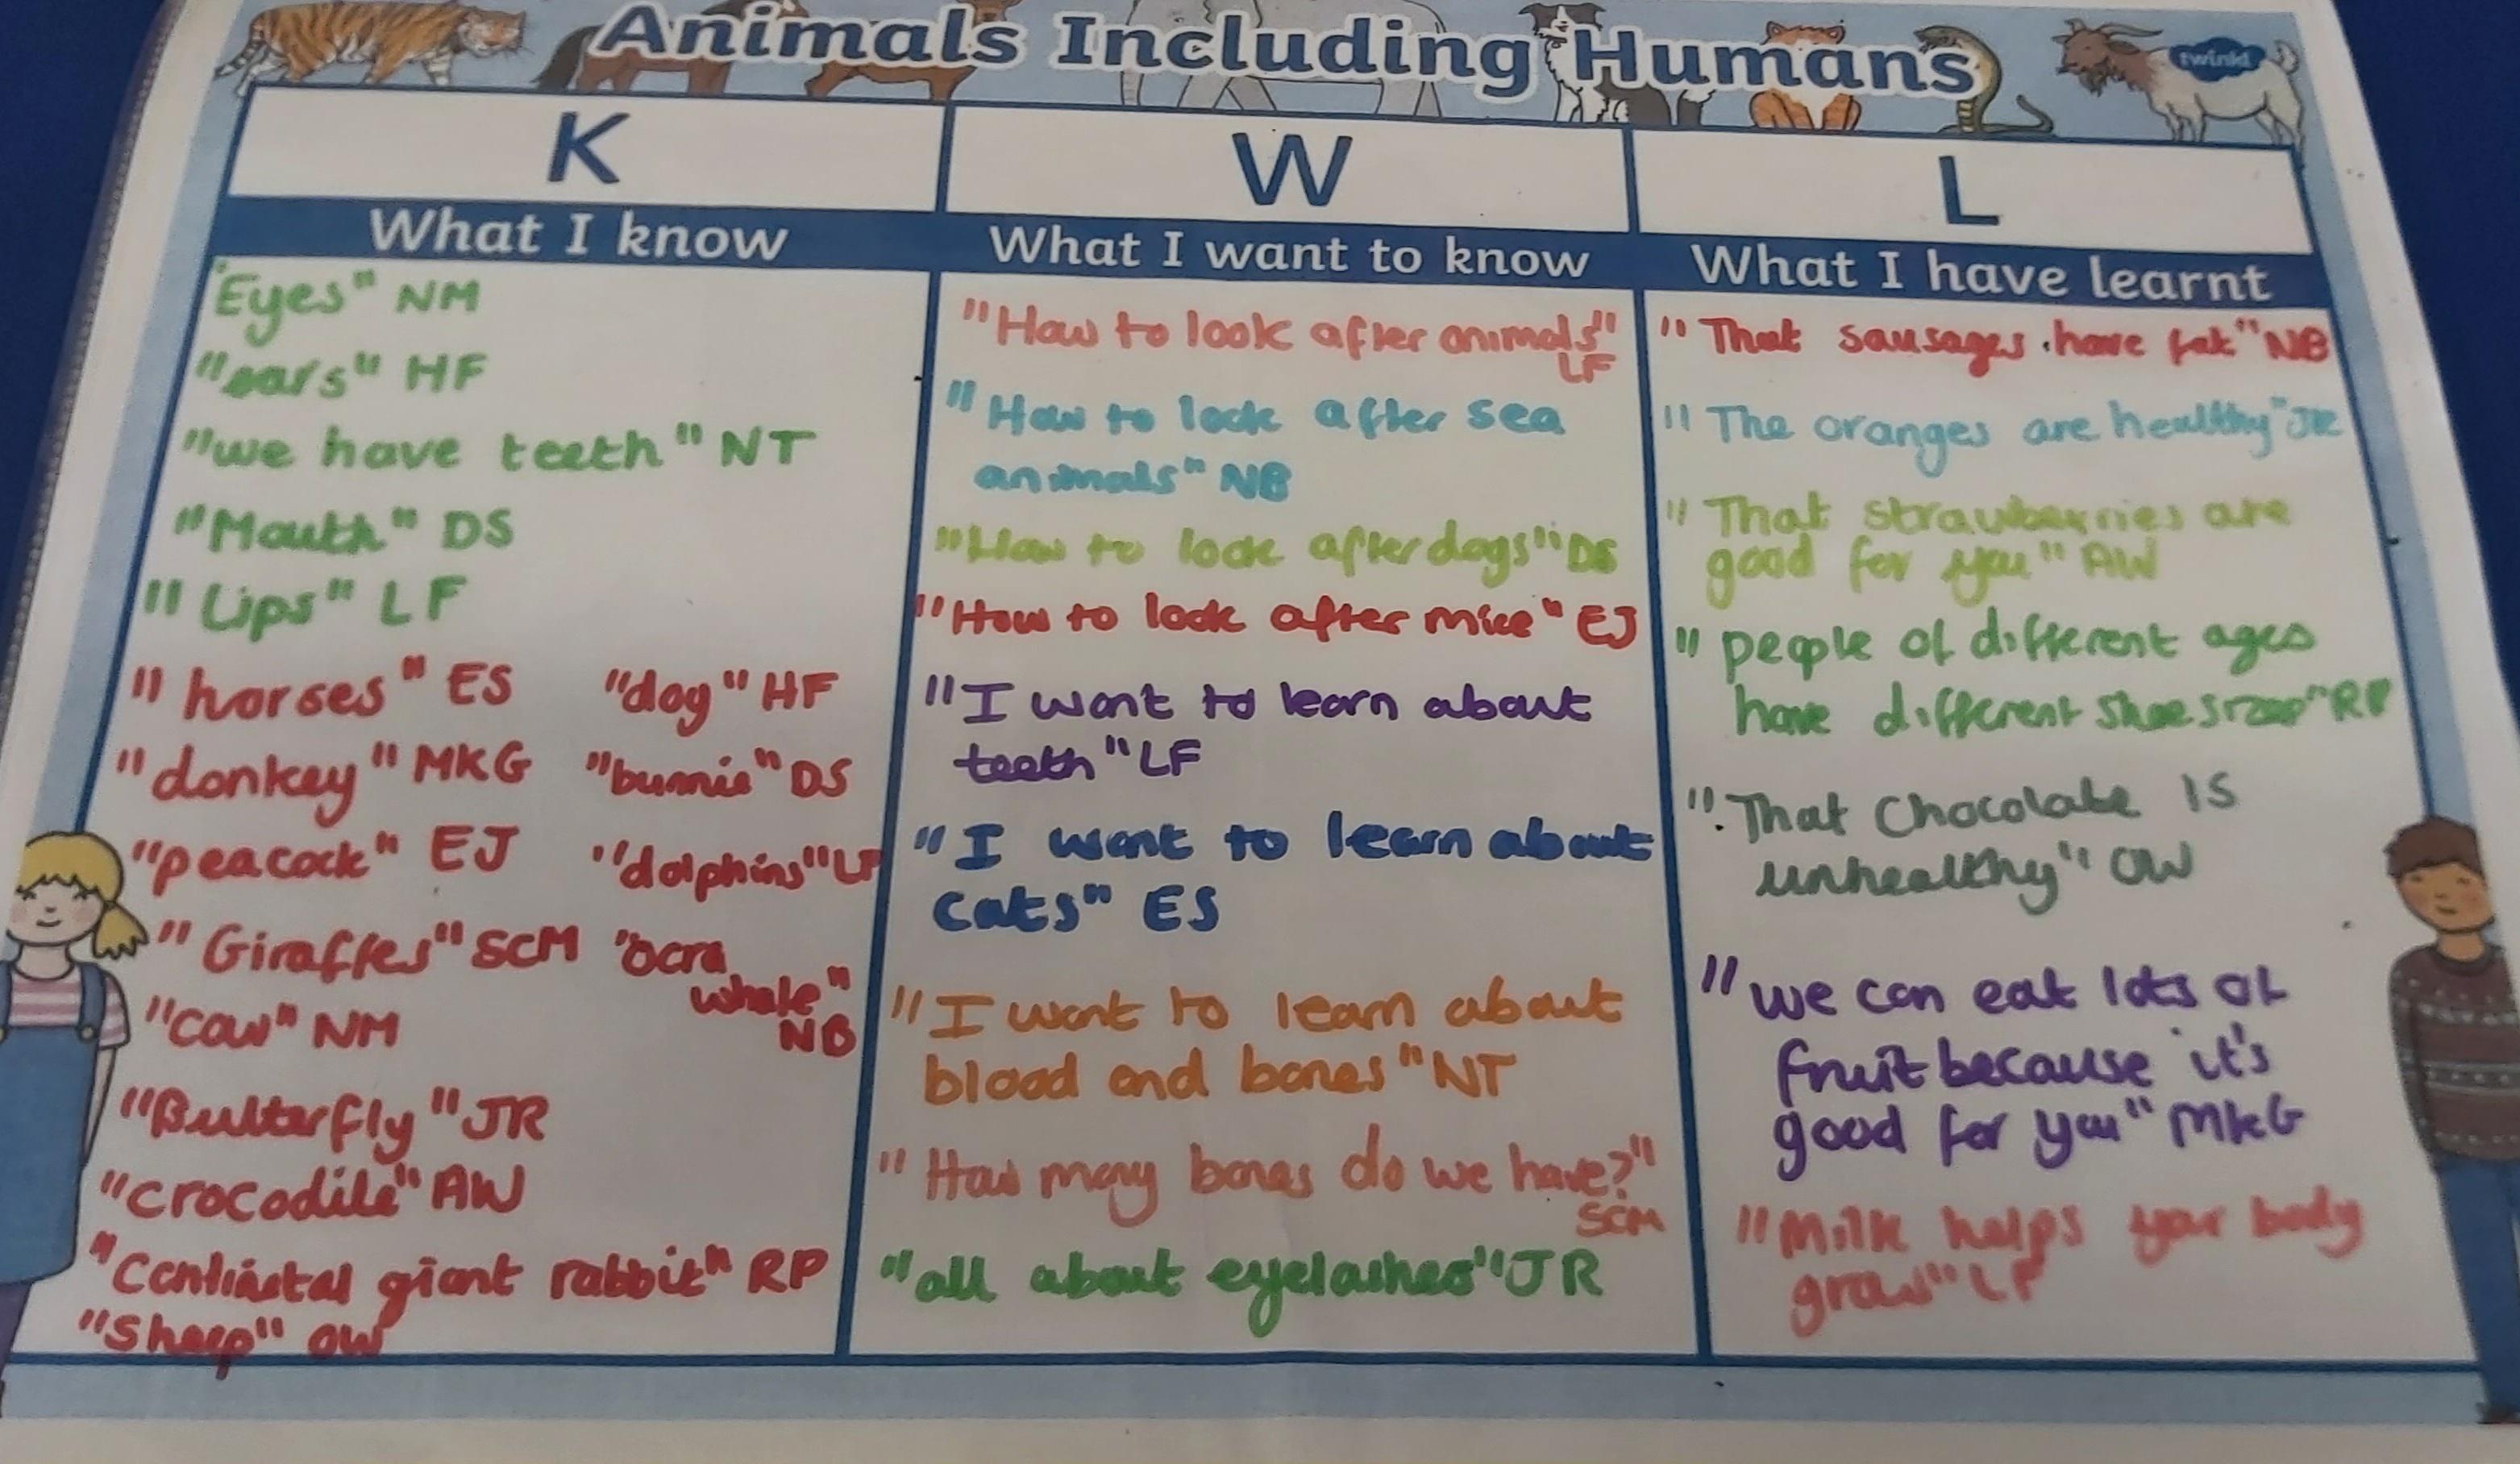 Animals Including Humans
twinkl
K
W
L
What I know
What I want to know
What I have learnt
"Eyes" NM
"ears" HF
"we have teeth" NT
"Mouth" DS
"Lips" LF
"horses" ES "dog" HF
"donkey" MKG "bunnie" DS
"peacock" EJ "dolphins" LF
"Giraffes" SCM "ocra
whale"
"cow" NM NB
"Butterfly" JR
"crocodile" AW
giant rabbit" RP
"Sheep" OW
"How to look after animals"
LF
"How to look after sea
animals" NB
"How to look after dogs" DS
"How to look after mice" EJ
"I want to learn about
teeth" LF
"I want to learn about
Cats" ES
"I want to learn about
blood and bones" NT
"How many bones do we have?"
SCM
"all about eyelashes" JR
"That sausages have fat" NB
"The oranges are healthy" JR
"That strawberries are
good for you" AW
"people of different ages
have different shoe sizes" RP
"That Chocolate is
unhealthy" OW
"we can eat lots of
fruit because it's
good for you" MKG
"Milk helps your body
grow" LF